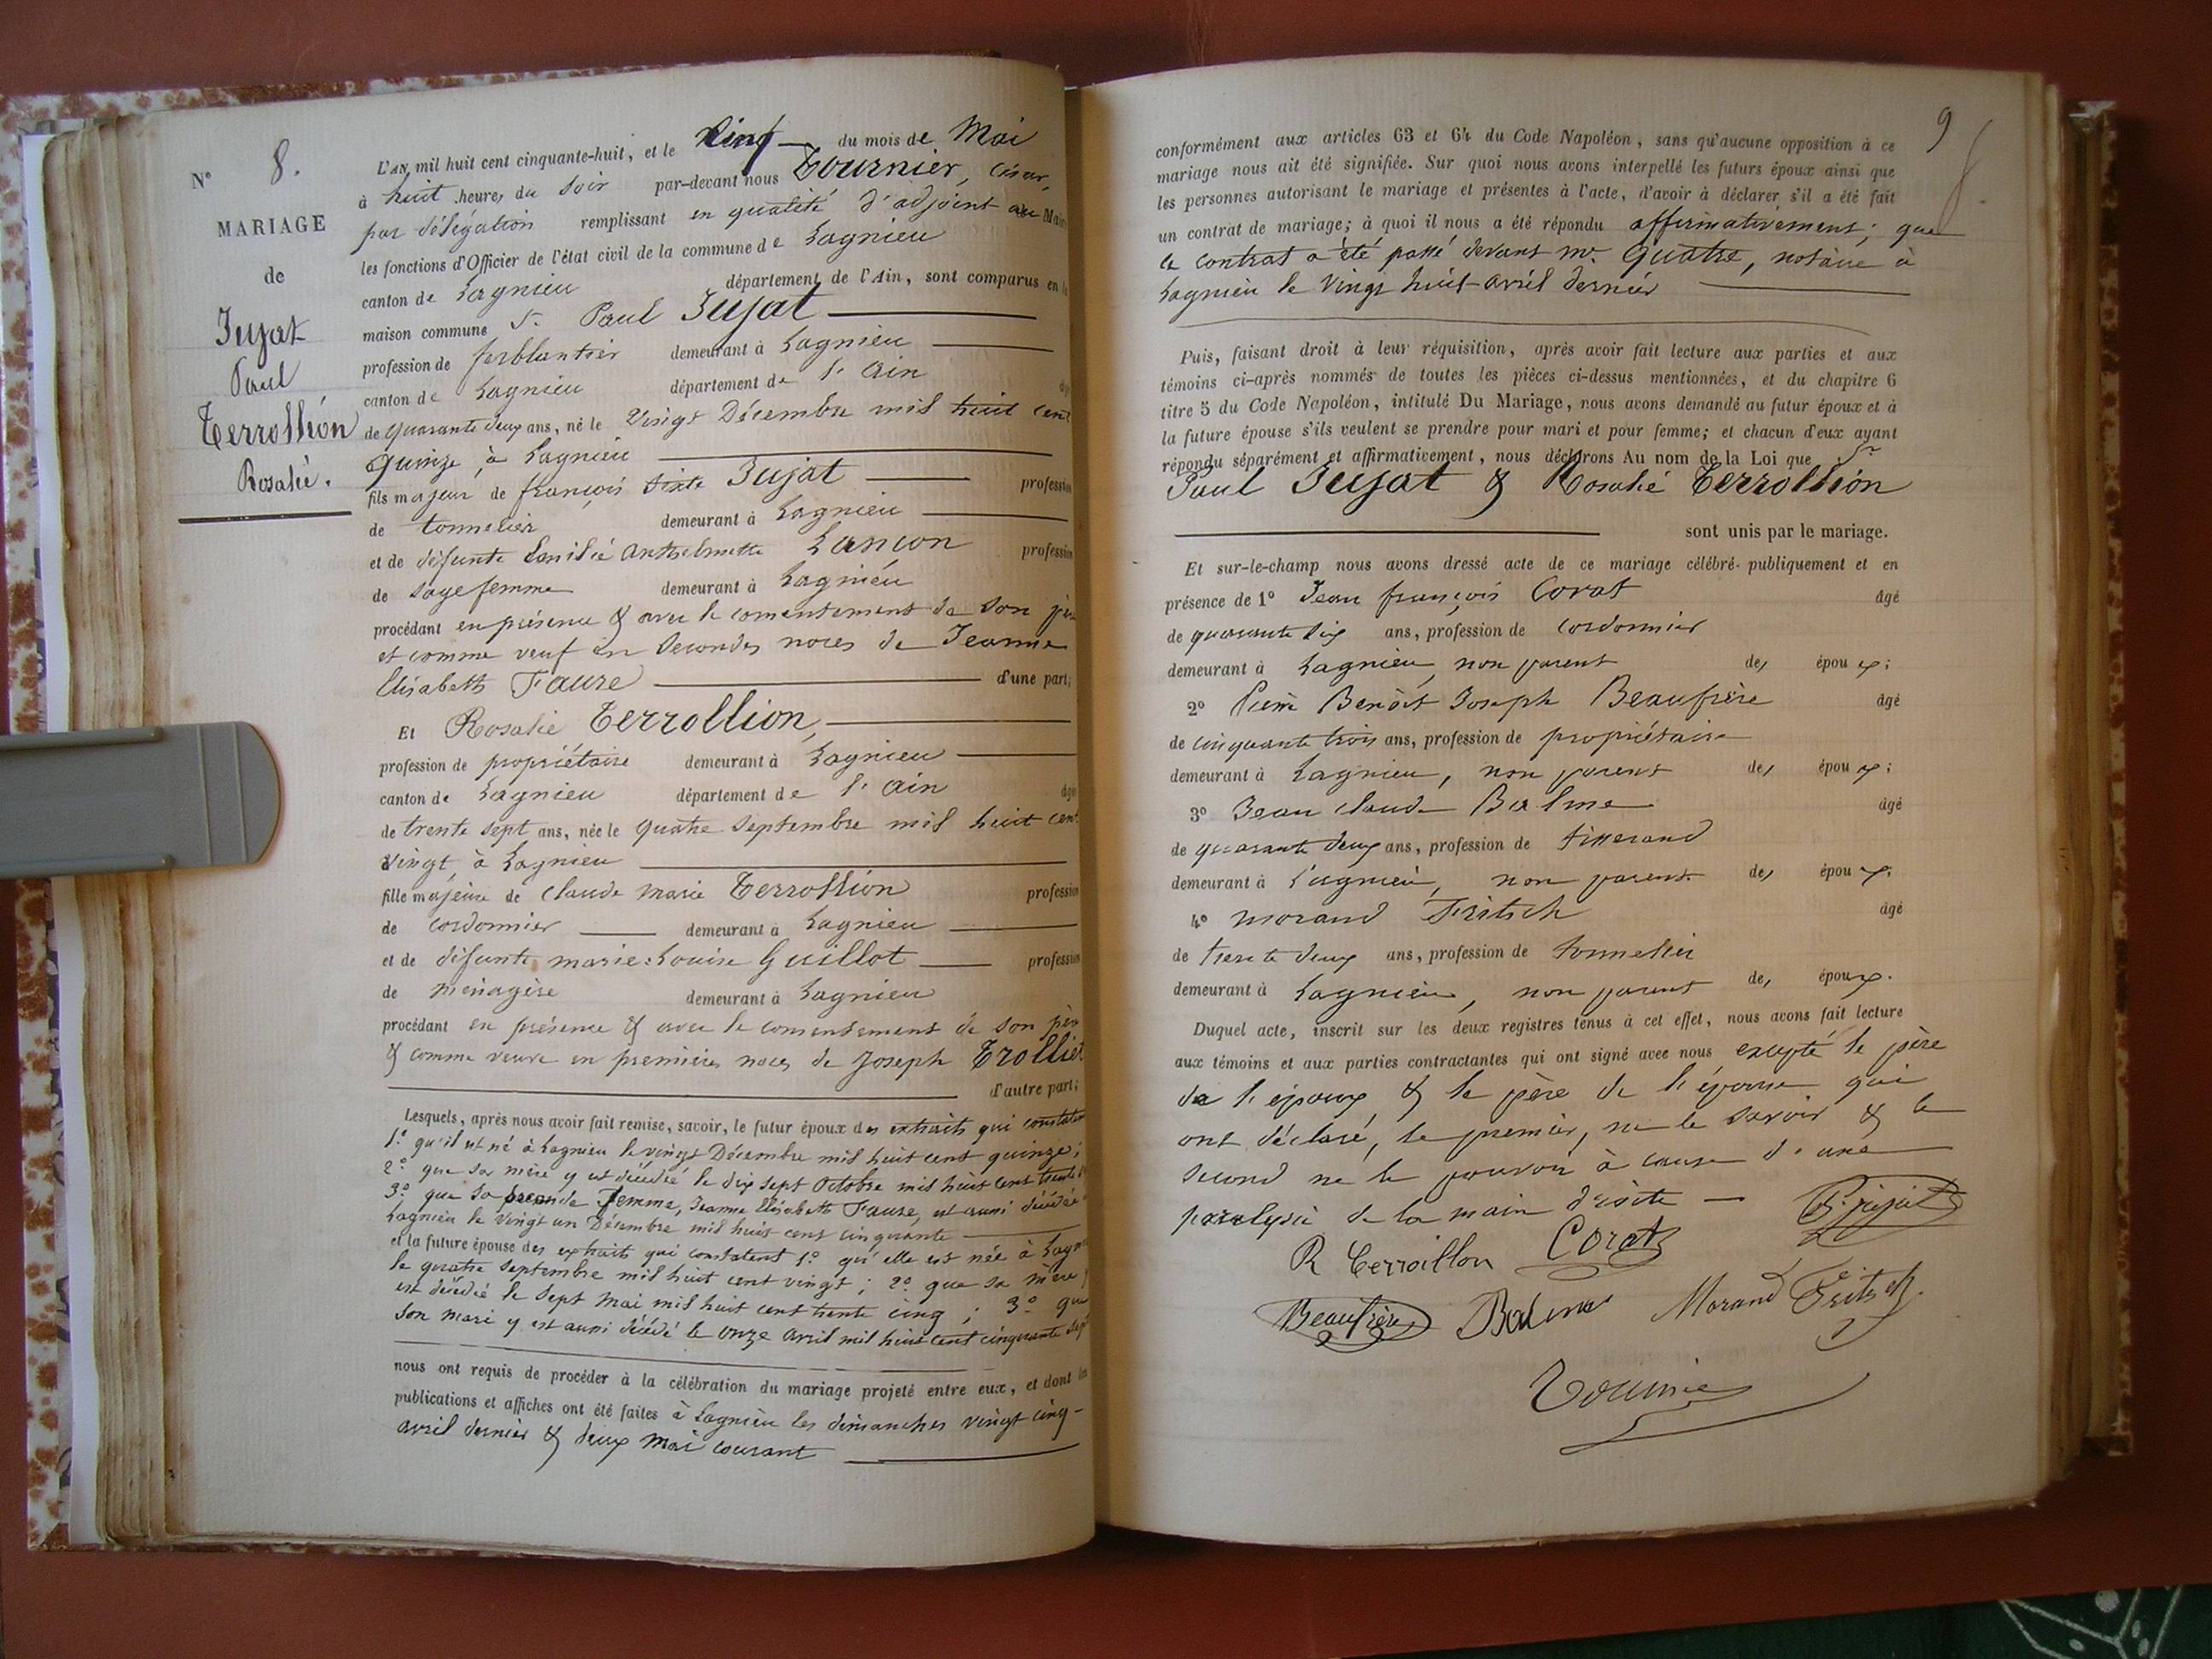 N° 8.
MARIAGE
de
Jujat
Paul
Terrollion
Rosalie.
L'AN mil huit cent cinquante-huit, et le Cinq du mois de Mai
à huit heures du soir par-devant nous Tournier, César,
par délégation remplissant en qualité d'adjoint au Maire
les fonctions d'Officier de l'état civil de la commune de Lagnieu
canton de Lagnieu département de l'Ain, sont comparus en la
maison commune Sr. Paul Jujat
profession de ferblantier demeurant à Lagnieu
canton de Lagnieu département de l'Ain âgé
de quarante deux ans, né le vingt Décembre mil huit cent
quinze, à Lagnieu
fils majeur de françois Sixte Jujat profession
de tonnelier demeurant à Lagnieu
et de défunte Emilie Anthelmette Lançon profession
de sage femme demeurant à Lagnieu
procédant en présence & avec le consentement de son père
et comme veuf en secondes noces de Jeanne
Elisabeth Faure d'une part;
Et Rosalie Terrollion,
profession de propriétaire demeurant à Lagnieu
canton de Lagnieu département de l'Ain âgée
de trente sept ans, née le quatre Septembre mil huit cent
vingt, à Lagnieu
fille majeure de Claude Marie Terrollion profession
de cordonnier demeurant à Lagnieu
et de défunte marie-Louise Guillot profession
de ménagère demeurant à Lagnieu
procédant en présence & avec le consentement de son père
& comme veuve en premières noces de Joseph Trolliet
d'autre part;
Lesquels, après nous avoir fait remise, savoir, le futur époux des extraits qui constatent
1.° qu'il est né à Lagnieu le vingt Décembre mil huit cent quinze;
2.° que sa mère y est décédée le dix sept Octobre mil huit cent trente
3.° que sa seconde femme, Jeanne Elisabeth Faure, est aussi décédée à
Lagnieu le vingt un Décembre mil huit cent cinquante
et la future épouse des extraits qui constatent 1.° qu'elle est née à Lagnieu
le quatre Septembre mil huit cent vingt; 2.° que sa mère y
est décédée le sept Mai mil huit cent trente cinq; 3.° que
son mari y est aussi décédé le onze avril mil huit cent cinquante sept
nous ont requis de procéder à la célébration du mariage projeté entre eux, et dont les
publications et affiches ont été faites à Lagnieu les dimanches vingt cinq
avril dernier & deux mai courant
9
conformément aux articles 63 et 64 du Code Napoléon, sans qu'aucune opposition à ce
mariage nous ait été signifiée. Sur quoi nous avons interpellé les futurs époux ainsi que
les personnes autorisant le mariage et présentes à l'acte, d'avoir à déclarer s'il a été fait
un contrat de mariage; à quoi il nous a été répondu affirmativement; que
le contrat a été passé devant Me. Quatre, notaire à
Lagnieu le vingt huit avril dernier
Puis, faisant droit à leur réquisition, après avoir fait lecture aux parties et aux
témoins ci-après nommés de toutes les pièces ci-dessus mentionnées, et du chapitre 6
titre 5 du Code Napoléon, intitulé Du Mariage, nous avons demandé au futur époux et à
la future épouse s'ils veulent se prendre pour mari et pour femme; et chacun d'eux ayant
répondu séparément et affirmativement, nous déclarons Au nom de la Loi que Sr
Paul Jujat & Rosalie Terrollion
sont unis par le mariage.
Et sur-le-champ nous avons dressé acte de ce mariage célébré publiquement et en
présence de 1° Jean françois Corat âgé
de quarante six ans, profession de cordonnier
demeurant à Lagnieu, non parent des époux;
2° Pierre Benoît Joseph Beaufrère âgé
de cinquante trois ans, profession de propriétaire
demeurant à Lagnieu, non parent des époux;
3° Jean Claude Balme âgé
de quarante deux ans, profession de tisserand
demeurant à Lagnieu, non parent des époux;
4° morand Fritsch âgé
de trente deux ans, profession de tonnelier
demeurant à Lagnieu, non parent des époux.
Duquel acte, inscrit sur les deux registres tenus à cet effet, nous avons fait lecture
aux témoins et aux parties contractantes qui ont signé avec nous excepté le père
de l'époux & le père de l'épouse qui
ont déclaré, le premier, ne le savoir & le
second ne le pouvoir à cause d'une
paralysie de la main droite
P. jujat
R Terroillon Corat
Beaufrère Balme Morand Fritsch
Tournier